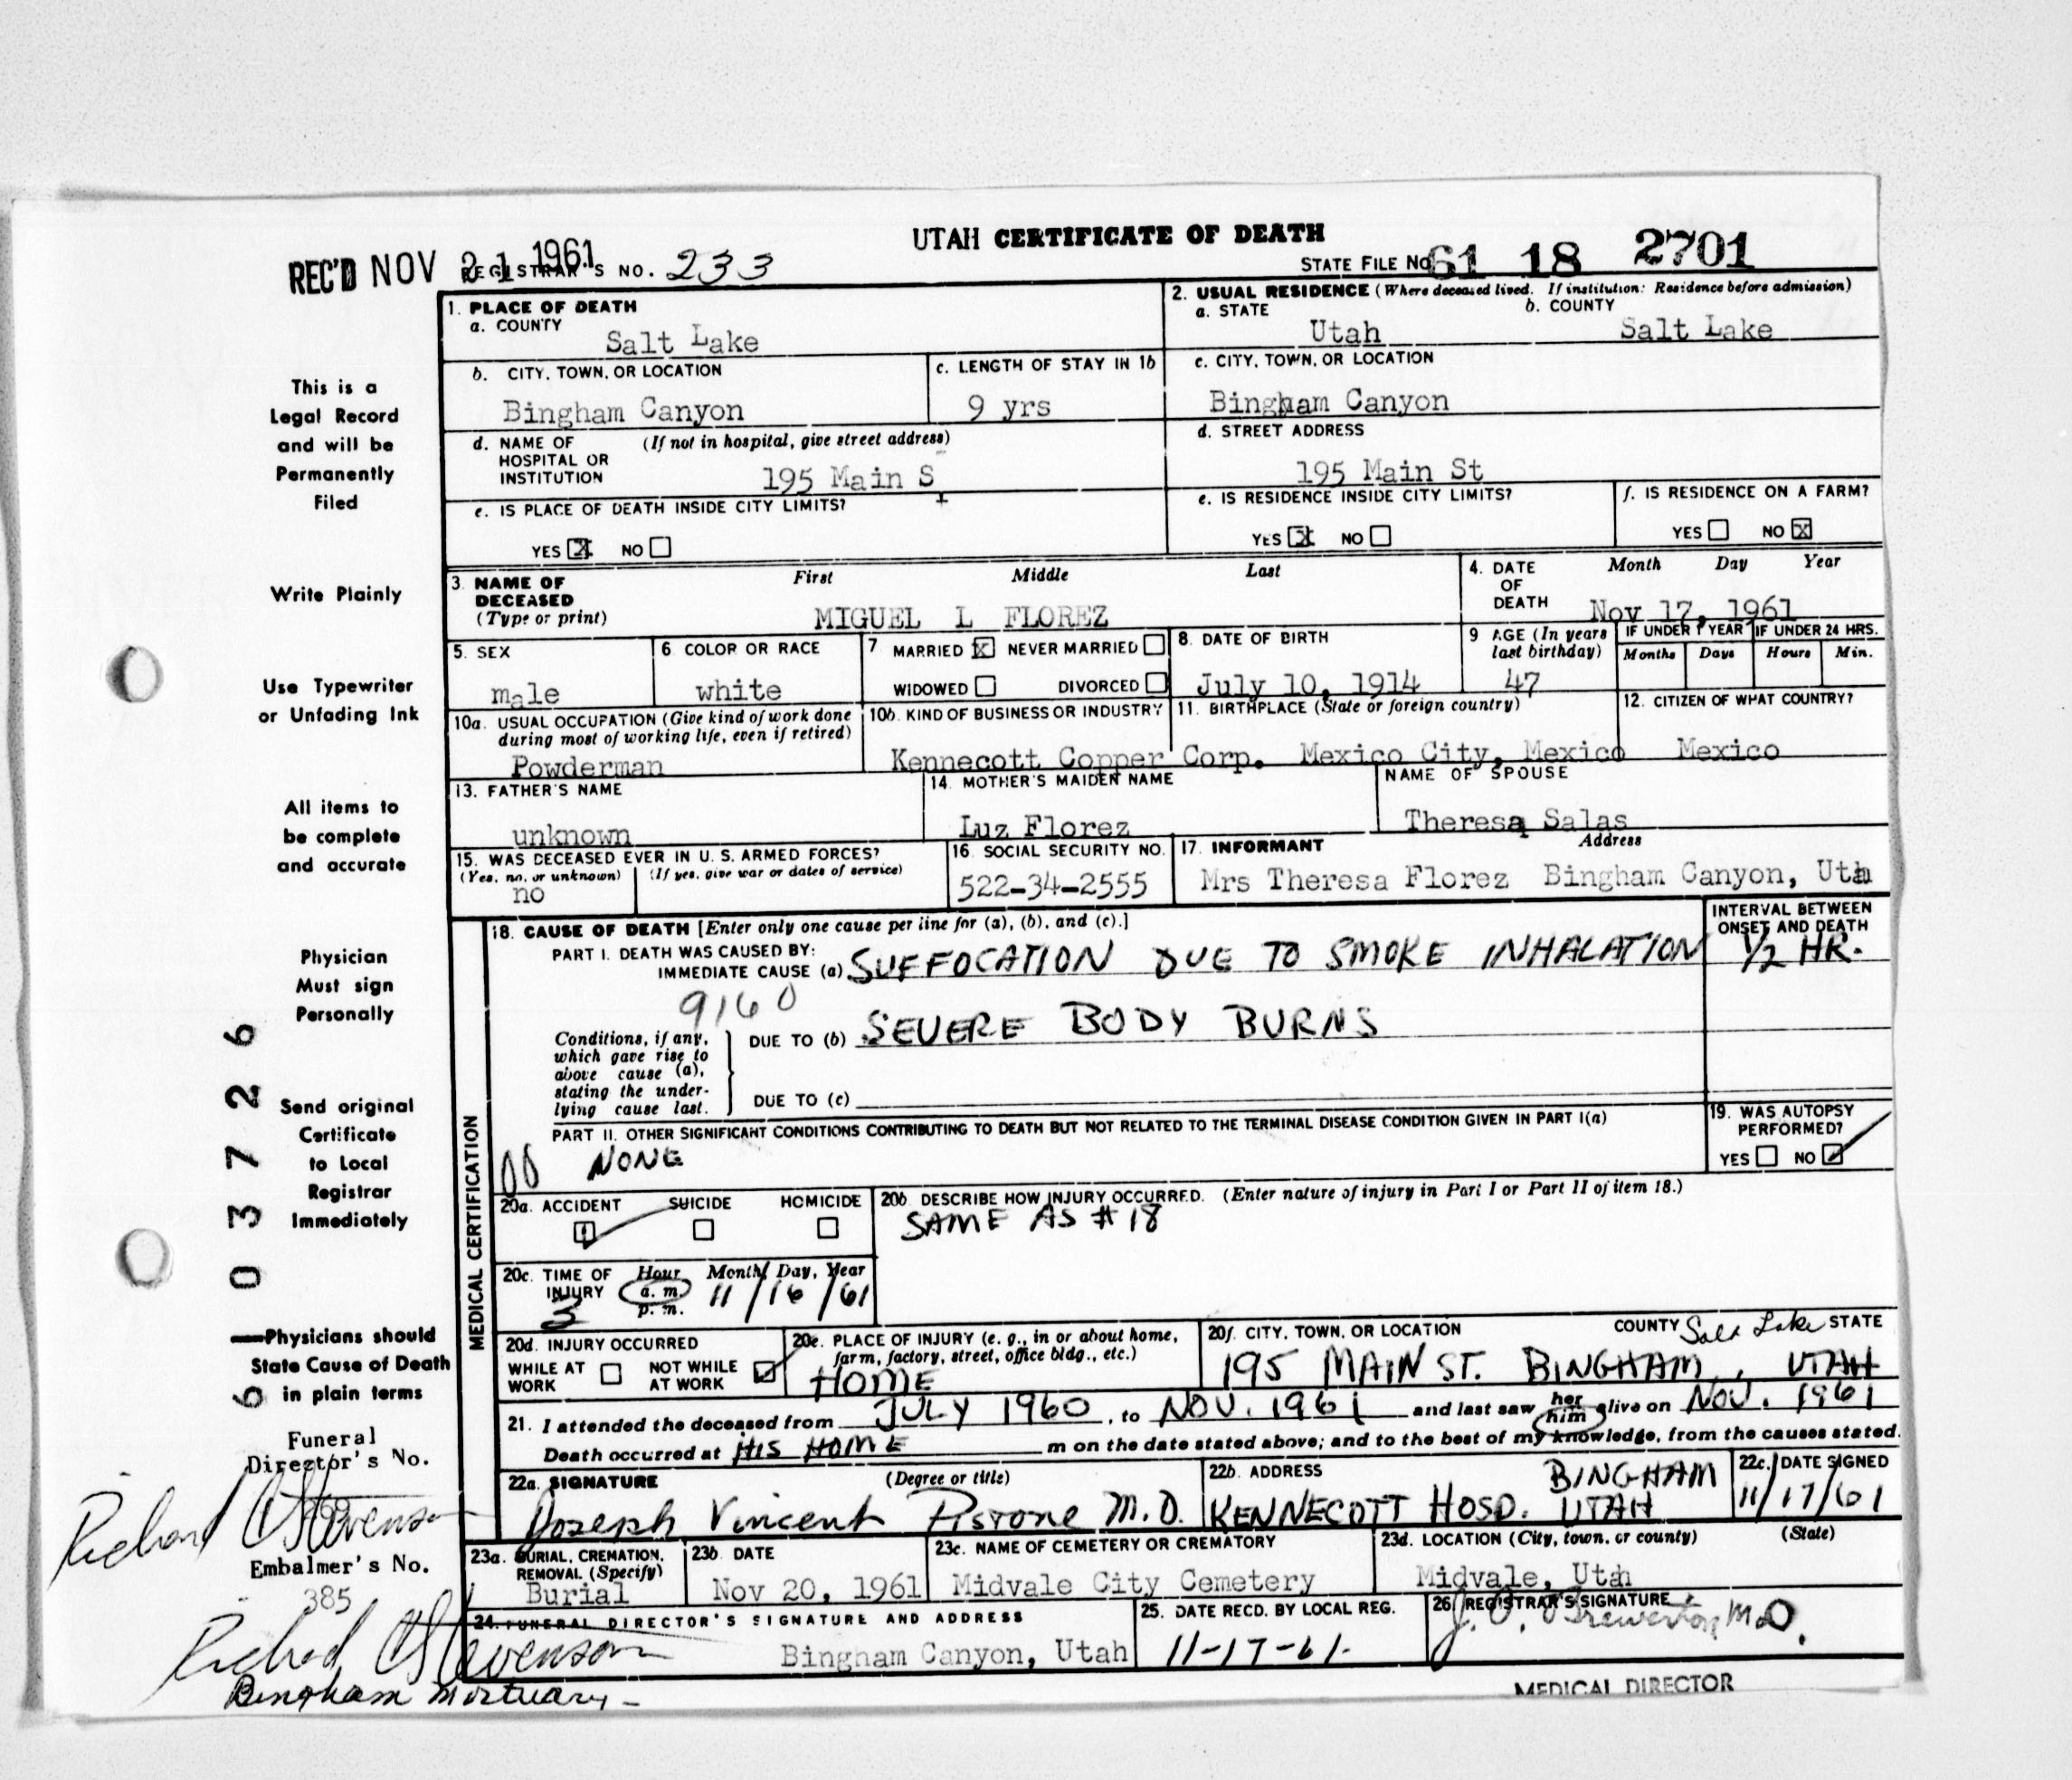 UTAH CERTIFICATE OF DEATH
REC'D NOV 21 1961 REGISTRAR'S NO. 233
STATE FILE NO. 61 18 2701
1. PLACE OF DEATH
a. COUNTY
Salt Lake
2. USUAL RESIDENCE (Where deceased lived. If institution: Residence before admission)
a. STATE b. COUNTY
Utah Salt Lake
b. CITY, TOWN, OR LOCATION
Bingham Canyon
c. LENGTH OF STAY IN 1b
9 yrs
c. CITY, TOWN, OR LOCATION
Bingham Canyon
d. NAME OF (If not in hospital, give street address)
HOSPITAL OR
INSTITUTION
195 Main St
d. STREET ADDRESS
195 Main St
e. IS PLACE OF DEATH INSIDE CITY LIMITS?
YES X NO
e. IS RESIDENCE INSIDE CITY LIMITS?
YES X NO
f. IS RESIDENCE ON A FARM?
YES NO X
3. NAME OF DECEASED
(Type or print)
First Middle Last
MIGUEL L FLOREZ
4. DATE OF DEATH
Month Day Year
Nov 17, 1961
5. SEX
male
6. COLOR OR RACE
white
7 MARRIED X NEVER MARRIED
WIDOWED DIVORCED
8. DATE OF BIRTH
July 10, 1914
9 AGE (In years last birthday)
47
IF UNDER 1 YEAR IF UNDER 24 HRS.
Months Days Hours Min.
10a. USUAL OCCUPATION (Give kind of work done
during most of working life, even if retired)
Powderman
10b. KIND OF BUSINESS OR INDUSTRY
Kennecott Copper Corp.
11. BIRTHPLACE (State or foreign country)
Mexico City, Mexico
12. CITIZEN OF WHAT COUNTRY?
Mexico
13. FATHER'S NAME
unknown
14. MOTHER'S MAIDEN NAME
Luz Florez
NAME OF SPOUSE
Theresa Salas
15. WAS DECEASED EVER IN U. S. ARMED FORCES?
(Yes, no, or unknown) (If yes, give war or dates of service)
no
16. SOCIAL SECURITY NO.
522-34-2555
17. INFORMANT Address
Mrs Theresa Florez Bingham Canyon, Utah
18. CAUSE OF DEATH [Enter only one cause per line for (a), (b), and (c).]
INTERVAL BETWEEN
ONSET AND DEATH
PART I. DEATH WAS CAUSED BY:
IMMEDIATE CAUSE (a) SUFFOCATION DUE TO SMOKE INHALATION 1/2 HR.
9160
Conditions, if any,
which gave rise to
above cause (a),
stating the under-
lying cause last.
DUE TO (b) SEVERE BODY BURNS
DUE TO (c)
PART II. OTHER SIGNIFICANT CONDITIONS CONTRIBUTING TO DEATH BUT NOT RELATED TO THE TERMINAL DISEASE CONDITION GIVEN IN PART I(a)
NONE
19. WAS AUTOPSY
PERFORMED?
YES NO
20a. ACCIDENT SUICIDE HOMICIDE
20b. DESCRIBE HOW INJURY OCCURRED. (Enter nature of injury in Part I or Part II of item 18.)
SAME AS # 18
20c. TIME OF INJURY
Hour Month, Day, Year
a. m.
p. m.
3 11/16/61
20d. INJURY OCCURRED
WHILE AT WORK NOT WHILE AT WORK
20e. PLACE OF INJURY (e. g., in or about home,
farm, factory, street, office bldg., etc.)
HOME
20f. CITY, TOWN, OR LOCATION COUNTY Salt Lake STATE
195 MAIN ST. BINGHAM, UTAH
21. I attended the deceased from JULY 1960, to NOV. 1961 and last saw her him alive on NOV. 1961
Death occurred at HIS HOME m on the date stated above; and to the best of my knowledge, from the causes stated.
22a. SIGNATURE (Degree or title)
Joseph Vincent Pistone M.D.
22b. ADDRESS
KENNECOTT HOSP. BINGHAM UTAH
22c. DATE SIGNED
11/17/61
23a. BURIAL, CREMATION,
REMOVAL (Specify)
Burial
23b. DATE
Nov 20, 1961
23c. NAME OF CEMETERY OR CREMATORY
Midvale City Cemetery
23d. LOCATION (City, town, or county) (State)
Midvale, Utah
24. FUNERAL DIRECTOR'S SIGNATURE AND ADDRESS
Richard C Stevenson Bingham Canyon, Utah
Bingham Mortuary
25. DATE RECD. BY LOCAL REG.
11-17-61
26 REGISTRAR'S SIGNATURE
M.D.
MEDICAL DIRECTOR
This is a
Legal Record
and will be
Permanently
Filed
Write Plainly
Use Typewriter
or Unfading Ink
All items to
be complete
and accurate
Physician
Must sign
Personally
Send original
Certificate
to Local
Registrar
Immediately
Physicians should
State Cause of Death
in plain terms
Funeral
Director's No.
Richard C Stevenson
Embalmer's No.
385
MEDICAL CERTIFICATION
6 0 3 7 2 6